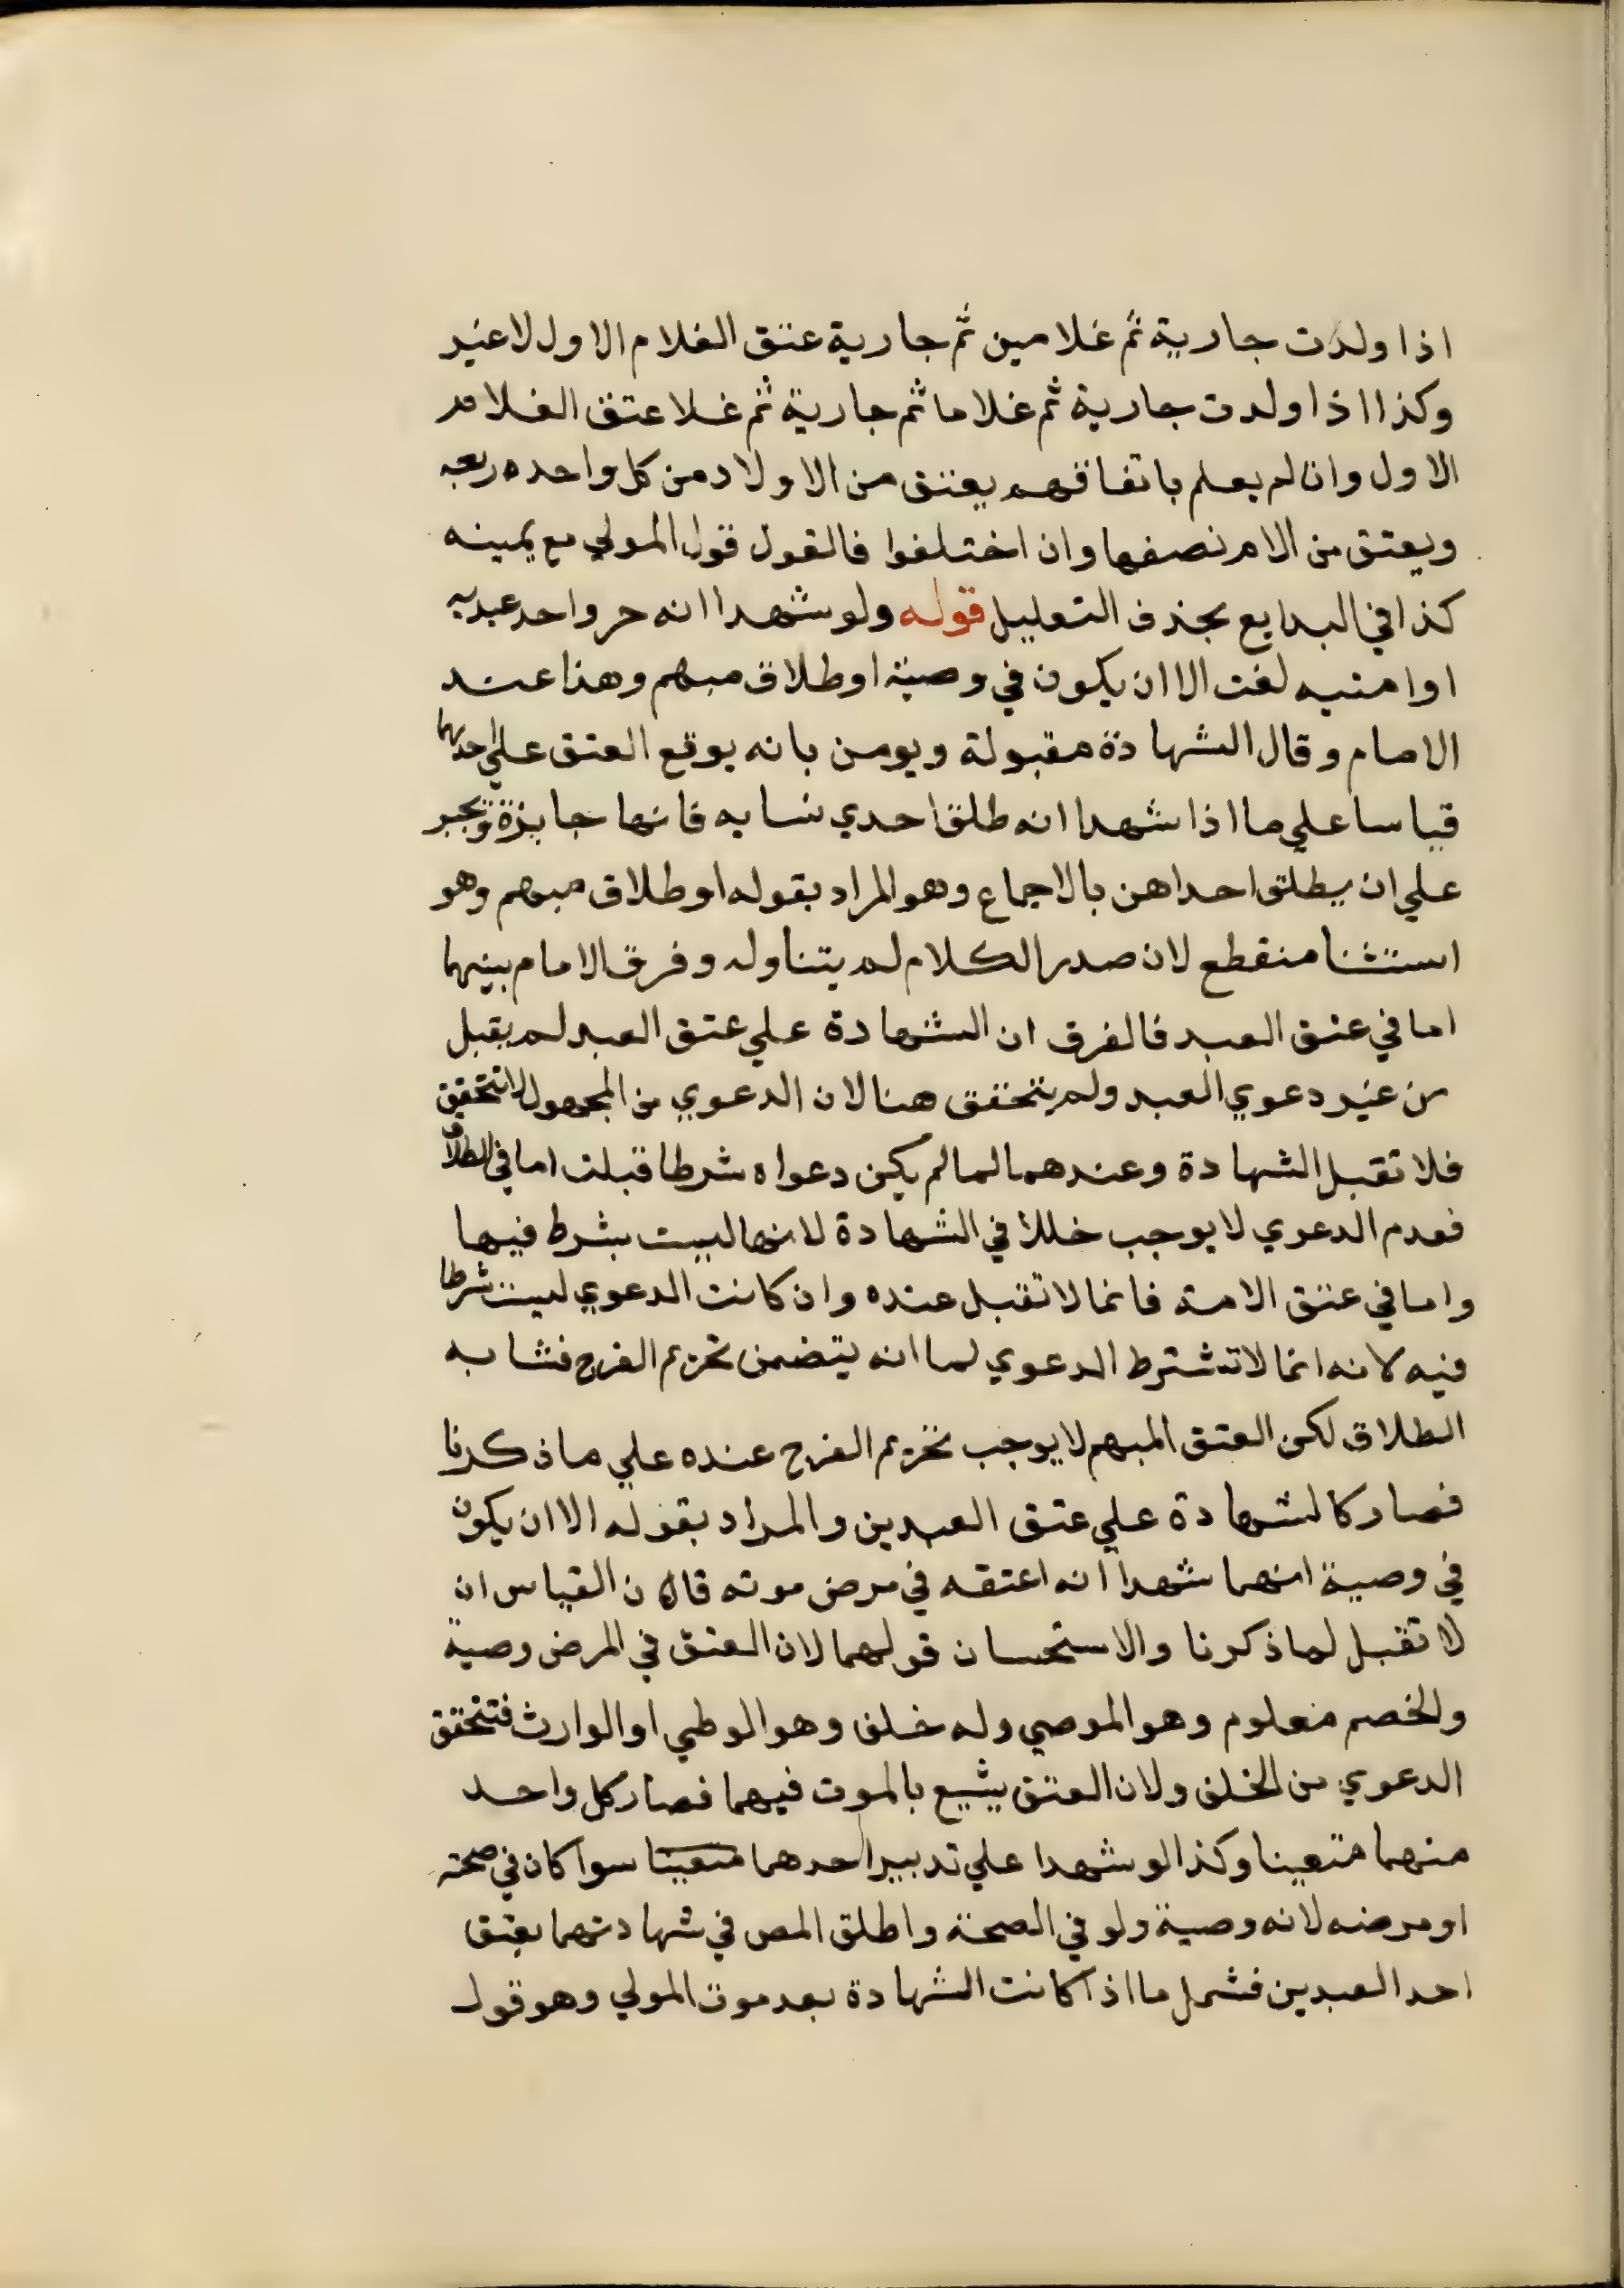 اذا ولدت جارية ثم غلامين ثم جارية عتق الغلام الاول لا غير
وكذا اذا ولدت جارية ثم غلاما ثم جارية ثم غلا عتق الغلام
الاول وان لم يعلم باتفاقهم يعتق من الاولاد من كل واحده ربعه
ويعتق من الام نصفها وان اختلفوا فالقول قول المولي مع يمينه
كذا في البدايع بحذف التعليل قوله ولو شهدا انه حر واحد عبديه
او امتيه لغت الا ان يكون في وصية او طلاق مبهم وهذا عند
الامام وقال الشهادة مقبولة ويومن بانه يوقع العتق علي احدهما
قياسا علي ما اذا شهدا انه طلق احدي نسايه فانها جايزة ويجبر
علي ان يطلق احداهن بالاجماع وهو المراد بقوله او طلاق مبهم وهو
استثنا منقطع لان صدر الكلام لم يتناوله وفرق الامام بينهما
اما في عتق العبد فالفرق ان الشهادة علي عتق العبد لم يقبل
من غير دعوي العبد ولم يتحقق هنا لان الدعوي من المجهول لا تتحقق
فلا تقبل الشهادة وعندهما لما لم يكن دعواه شرطا قبلت اما في الطلاق
فعدم الدعوي لا يوجب خللا في الشهادة لانها ليست بشرط فيها
واما في عتق الامة فانما لا تقبل عنده وان كانت الدعوي ليست شرطا
فيه لانه انما لا تشترط الدعوي لما انه يتضمن تحريم الفرج فشابه
الطلاق لكن العتق المبهم لا يوجب تحريم الفرج عنده علي ما ذكرنا
فصار كالشهادة علي عتق العبدين والمراد بقوله الا ان يكون
في وصية انهما شهدا انه اعتقه في مرض موته قال ن القياس ان
لا تقبل لما ذكرنا والاستحسان قولهما لان العتق في المرض وصية
والخصم معلوم وهو الموصي وله خلف وهو الوطي او الوارث فتتحقق
الدعوي من الخلف ولان العتق يشيع بالموت فيهما فصار كل واحد
منهما متعينا وكذا لو شهدا علي تدبير احدهما متعينا سوا كان في صحته
او مرضه لانه وصية ولو في الصحة واطلق المص في شهادتهما بعتق
احد العبدين فشمل ما اذا كانت الشهادة بعد موت المولي وهو قول